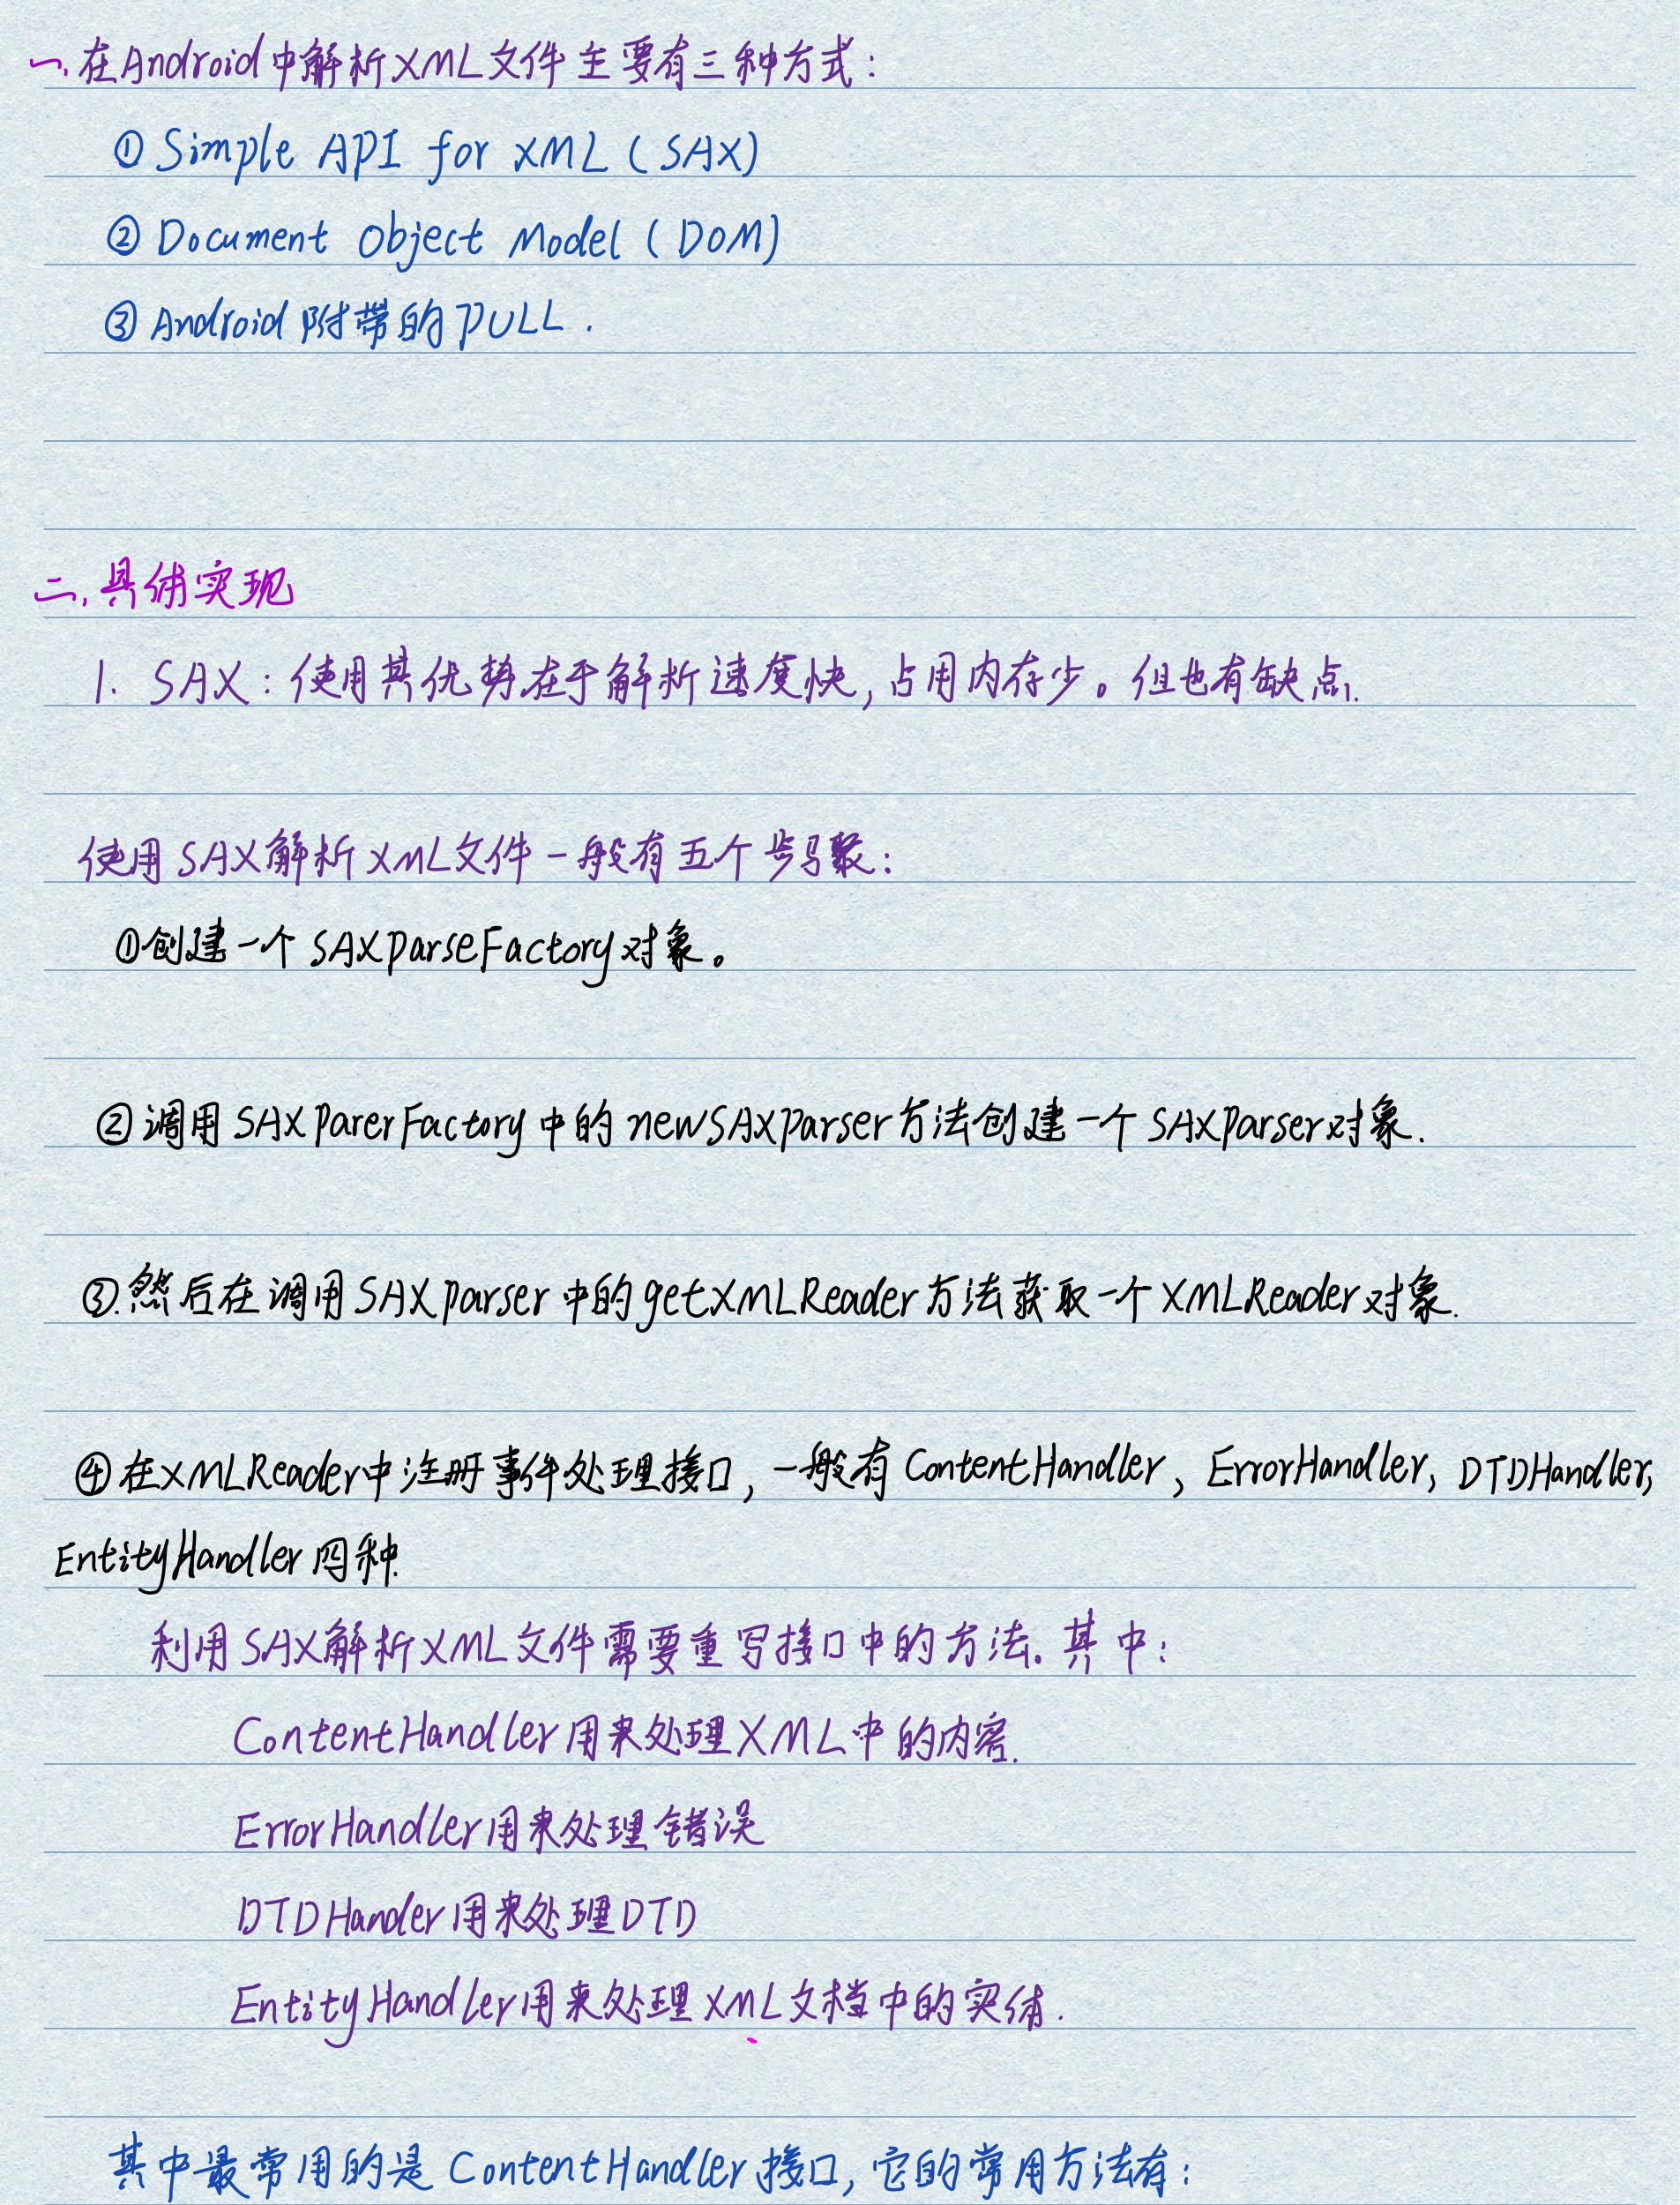 一、在Android中解析XML文件主要有三种方式：
① Simple API for XML (SAX)
② Document Object Model (DOM)
③ Android附带的PULL.
二、具体实现
1. SAX：使用其优势在于解析速度快，占用内存少。但也有缺点.
使用SAX解析XML文件一般有五个步骤：
①创建一个SAXParseFactory对象。
②调用SAXParerFactory中的newSAXParser方法创建一个SAXParser对象.
③.然后在调用SAXParser中的getXMLReader方法获取一个XMLReader对象.
④在XMLReader中注册事件处理接口，一般有ContentHandler、ErrorHandler, DTDHandler,
EntityHandler四种.
利用SAX解析XML文件需要重写接口中的方法。其中：
ContentHandler用来处理XML中的内容.
ErrorHandler用来处理错误
DTDHander用来处理DTD
EntityHandler用来处理XML文档中的实体.
其中最常用的是ContentHandler接口，它的常用方法有：